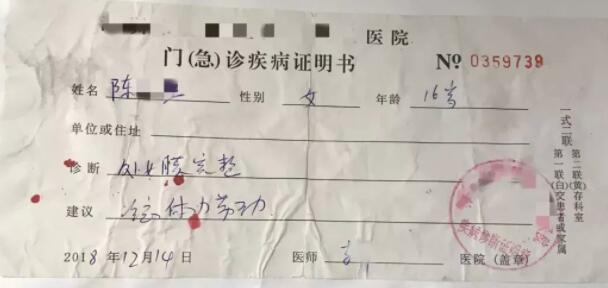 医院
门(急)诊疾病证明书 № 0359739
姓名 陈 性别 女 年龄 16岁
单位或住址
诊断 处女膜完整
建议
2018年12月14日 医师 医院(盖章)
一式二联
第一联(白)交患者或家属
第二联(黄)存科室